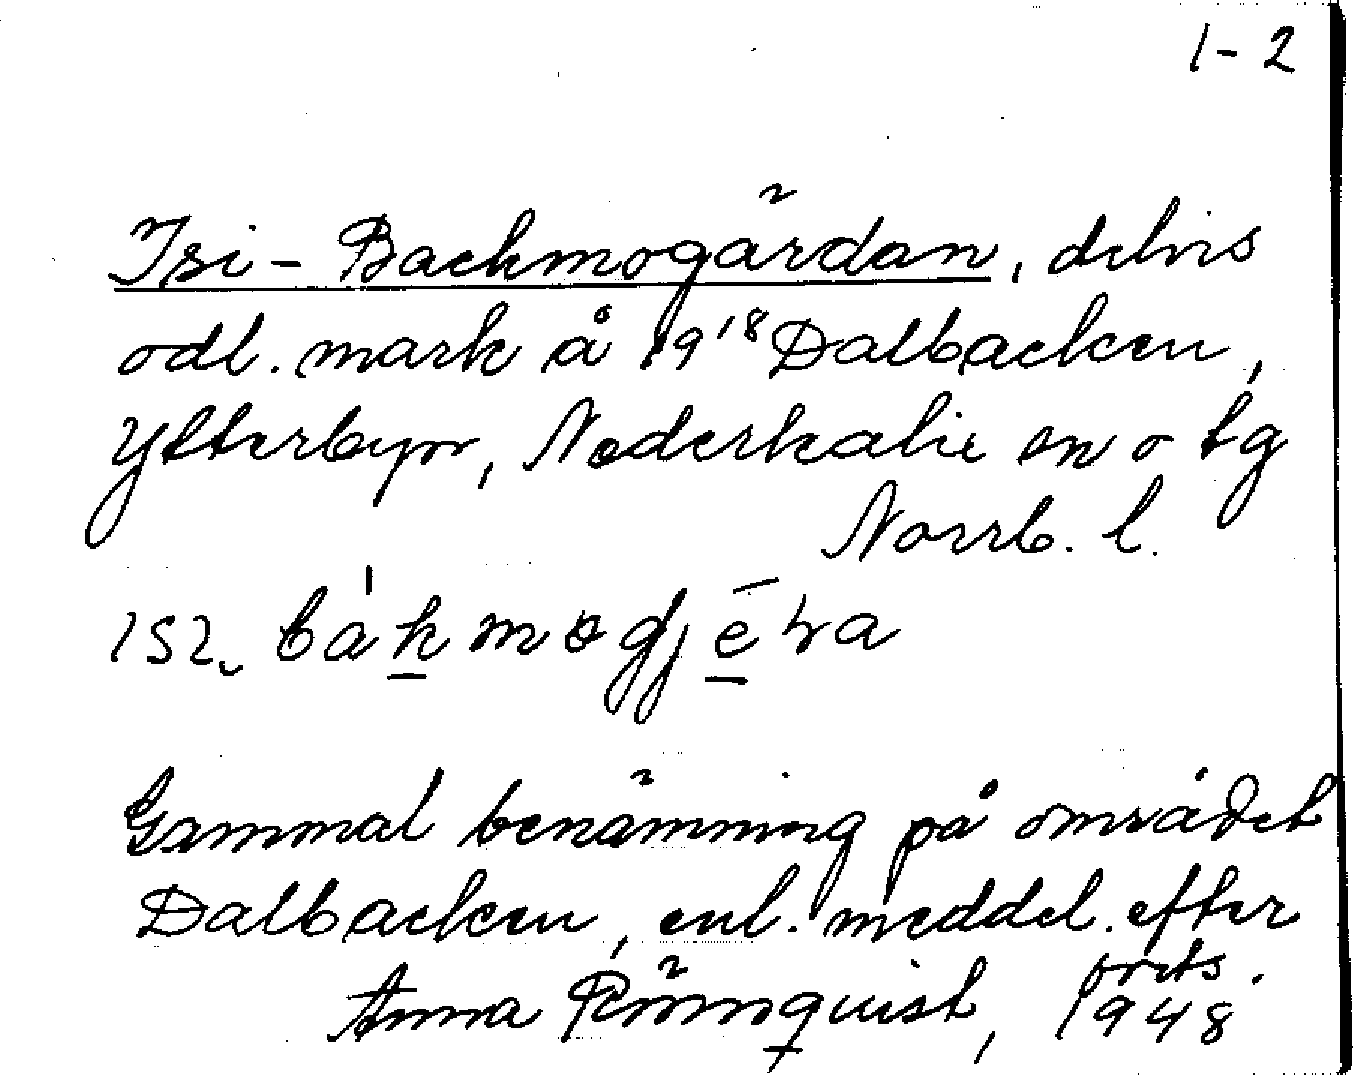 1-2
Isi-Backmogärdan, delvis
odl. mark å 19¹⁸ Dalbacken,
Ytterbyn, Nederkalix sn o tg
Norrb. l.
båkmogjēra
Gammal benämning på området
Dalbacken, enl. meddel. efter
Anna Rönnquist, 1948